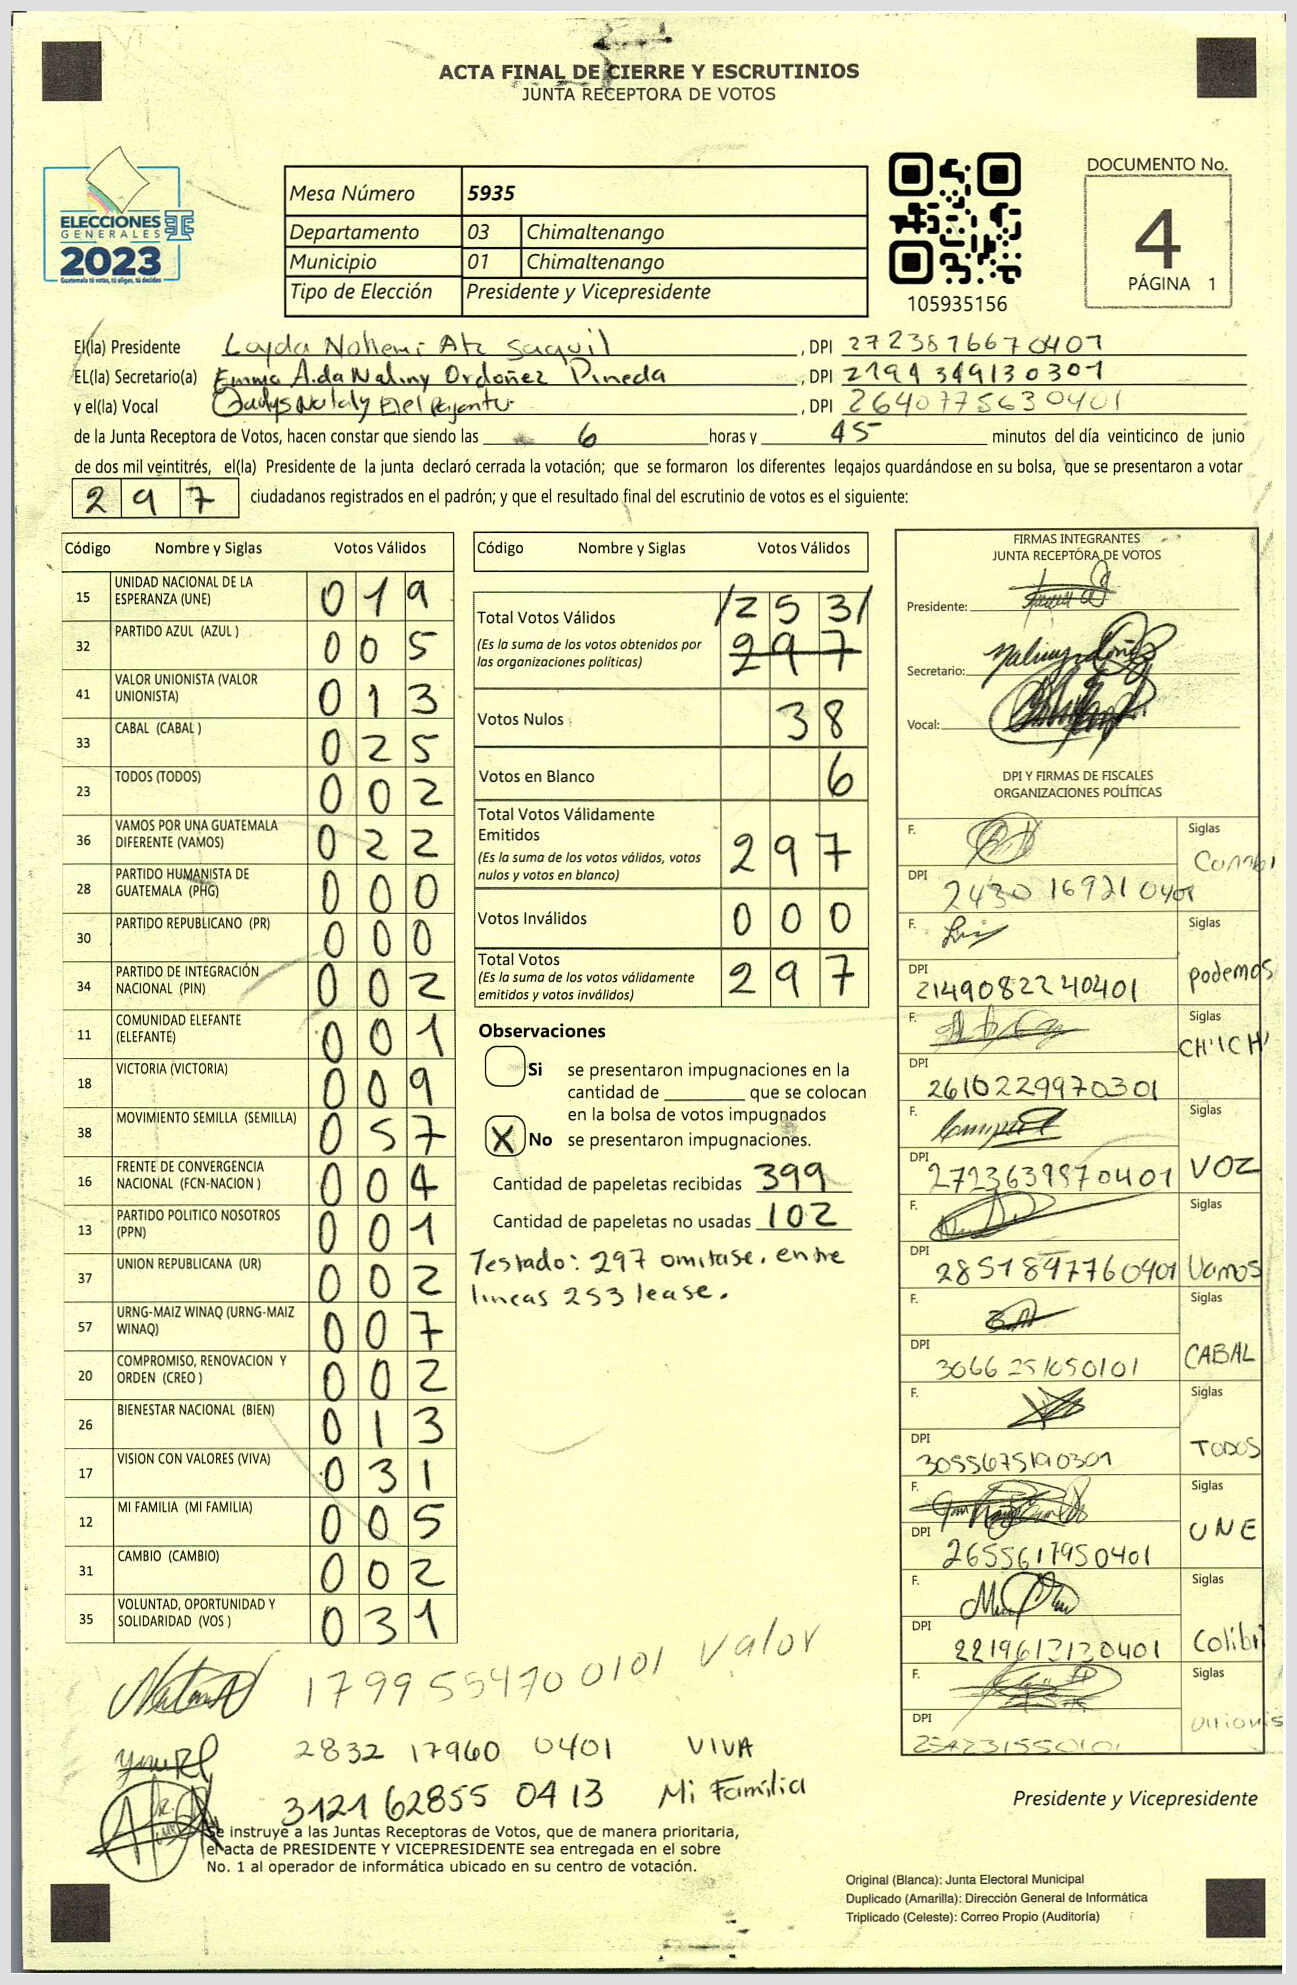 ACTA FINAL DE CIERRE Y ESCRUTINIOS
JUNTA RECEPTORA DE VOTOS
ELECCIONES
GENERALES
2023
Guatemala tú votas, tú eliges, tú decides
Mesa Número 5935
Departamento 03 Chimaltenango
Municipio 01 Chimaltenango
Tipo de Elección Presidente y Vicepresidente
105935156
DOCUMENTO No.
4
PÁGINA 1
El(la) Presidente Layda Nohemi Atz Saquil, DPI 2723876670401
EL(la) Secretario(a) Emma Aida Naliny Ordoñez Pineda, DPI 2194349130301
y el(la) Vocal Gladys Nataly, DPI 2640775630401
de la Junta Receptora de Votos, hacen constar que siendo las 6 horas y 45 minutos del día veinticinco de junio
de dos mil veintitrés, el(la) Presidente de la junta declaró cerrada la votación; que se formaron los diferentes legajos guardándose en su bolsa, que se presentaron a votar
297 ciudadanos registrados en el padrón; y que el resultado final del escrutinio de votos es el siguiente:
Código Nombre y Siglas Votos Válidos
15 UNIDAD NACIONAL DE LA ESPERANZA (UNE) 019
32 PARTIDO AZUL (AZUL ) 005
41 VALOR UNIONISTA (VALOR UNIONISTA) 013
33 CABAL (CABAL ) 025
23 TODOS (TODOS) 002
36 VAMOS POR UNA GUATEMALA DIFERENTE (VAMOS) 022
28 PARTIDO HUMANISTA DE GUATEMALA (PHG) 000
30 PARTIDO REPUBLICANO (PR) 000
34 PARTIDO DE INTEGRACIÓN NACIONAL (PIN) 002
11 COMUNIDAD ELEFANTE (ELEFANTE) 001
18 VICTORIA (VICTORIA) 009
38 MOVIMIENTO SEMILLA (SEMILLA) 057
16 FRENTE DE CONVERGENCIA NACIONAL (FCN-NACION ) 004
13 PARTIDO POLITICO NOSOTROS (PPN) 001
37 UNION REPUBLICANA (UR) 002
57 URNG-MAIZ WINAQ (URNG-MAIZ WINAQ) 007
20 COMPROMISO, RENOVACION Y ORDEN (CREO ) 002
26 BIENESTAR NACIONAL (BIEN) 013
17 VISION CON VALORES (VIVA) 031
12 MI FAMILIA (MI FAMILIA) 005
31 CAMBIO (CAMBIO) 002
35 VOLUNTAD, OPORTUNIDAD Y SOLIDARIDAD (VOS ) 031
Código Nombre y Siglas Votos Válidos
Total Votos Válidos /253/
(Es la suma de los votos obtenidos por las organizaciones políticas) 297
Votos Nulos 38
Votos en Blanco 6
Total Votos Válidamente Emitidos
(Es la suma de los votos válidos, votos nulos y votos en blanco) 297
Votos Inválidos 000
Total Votos
(Es la suma de los votos válidamente emitidos y votos inválidos) 297
Observaciones
Si se presentaron impugnaciones en la
cantidad de ________ que se colocan
en la bolsa de votos impugnados
X No se presentaron impugnaciones.
Cantidad de papeletas recibidas 399
Cantidad de papeletas no usadas 102
Testado: 297 omitase. entre
lineas 253 lease.
FIRMAS INTEGRANTES
JUNTA RECEPTORA DE VOTOS
Presidente:
Secretario:
Vocal:
DPI Y FIRMAS DE FISCALES
ORGANIZACIONES POLÍTICAS
F. Siglas
DPI 2430 16921 0401
F. Siglas podemos
DPI 2149082240401
F. Siglas
DPI 2610229970301
F. Siglas VOZ
DPI 2723639870401
F. Siglas Vamos
DPI 2851897760401
F. Siglas CABAL
DPI 3066 251050101
F. Siglas TODOS
DPI 3055675190301
F. Siglas UNE
DPI 2655617950401
F. Siglas Colibri
DPI 2219613120401
F. Siglas
DPI
1799554700101 Valor
2832 17960 0401 VIVA
3121 62855 0413 Mi Familia
Se instruye a las Juntas Receptoras de Votos, que de manera prioritaria,
el acta de PRESIDENTE Y VICEPRESIDENTE sea entregada en el sobre
No. 1 al operador de informática ubicado en su centro de votación.
Presidente y Vicepresidente
Original (Blanca): Junta Electoral Municipal
Duplicado (Amarilla): Dirección General de Informática
Triplicado (Celeste): Correo Propio (Auditoría)